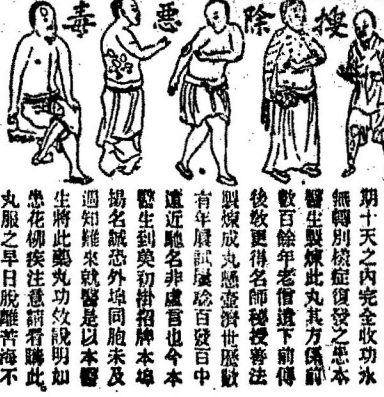 搜除惡毒
期十天之內完全收功永
無轉別樣症復發之患本
醫生製煉此丸其方係前
數百餘年老僧遺下前傳
後教更得名師秘授善法
製煉成丸懸壺濟世歷數
有年屢試屢騐百發百中
遠近馳名非虛言也今本
醫生到莫初掛招牌本埠
揚名誠恐外埠同胞未及
過知難來就醫是以本醫
生將此藥丸功效說明如
患花柳疾注意請看購此
丸服之早日脫離苦海不